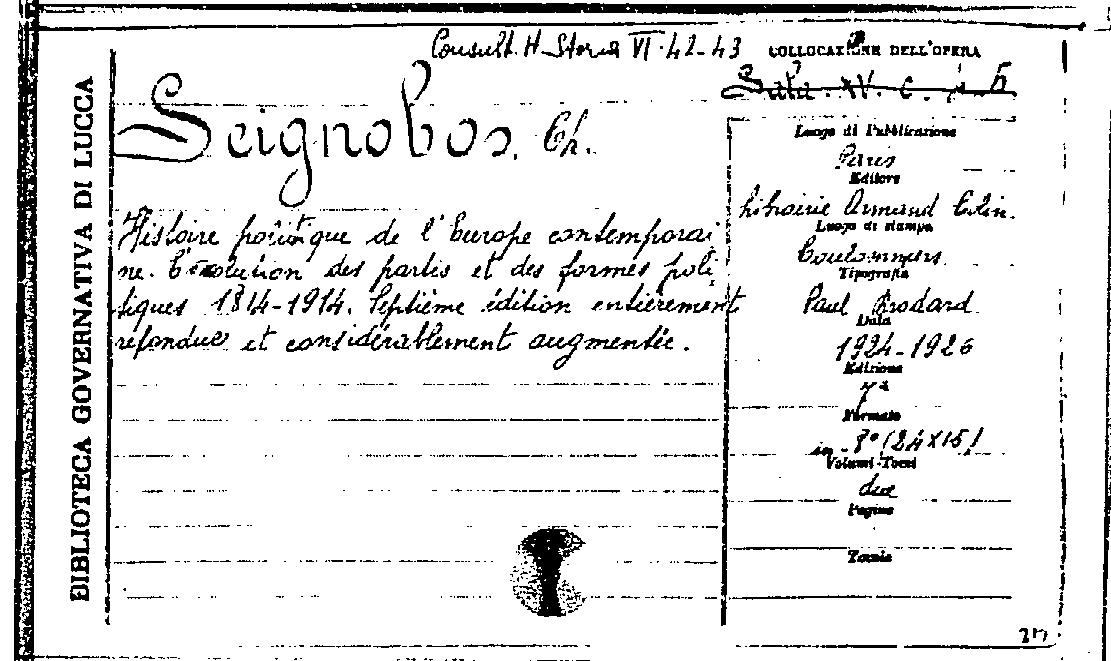 Consult. H. Storia VI. 42-43
COLLOCAZIONE DELL'OPERA
Sala. XV. c.
BIBLIOTECA GOVERNATIVA DI LUCCA
Seignobos, Ch.
Histoire politique de l'Europe contemporai
ne. L'évolution des partis et des formes poli
tiques 1814-1914. Septième édition entièrement
refondue et considérablement augmentée.
Luogo di Pubblicazione
Paris
Editore
Librairie Armand Colin.
Luogo di stampa
Coulommiers.
Tipografia
Paul Brodard
Data
1924-1926
Edizione
7ª
Formato
in-8° (24x15)
Volumi-Tomi
due
Pagine
Tavole